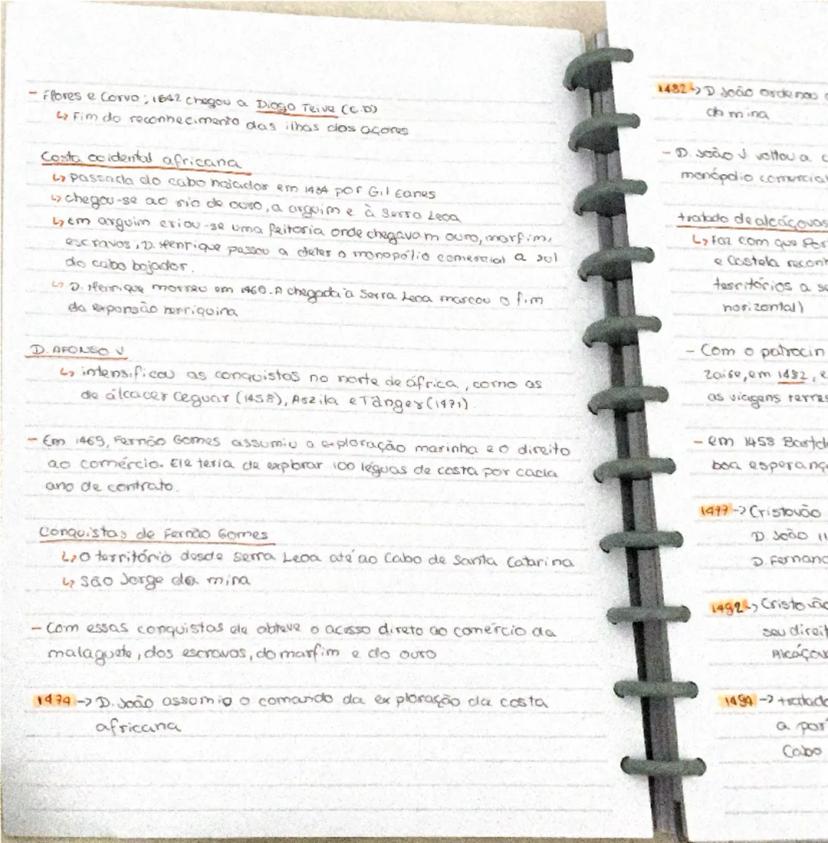 - Flores e Corvo; 1642 chegou a Diogo Teive (C.D)
↳ Fim do reconhecimento das ilhas dos açores
Costa ocidental africana
↳ passada do cabo bojador em 1434 por Gil Eanes
↳ chegou-se ao rio de ouso, a arguim e à Serra Leoa
↳ em arguim criou-se uma feitoria onde chegavam ouro, marfim,
escravos, D. Henrique passou a deter o monopólio comercial a sul
do cabo bojador.
↳ D. Henrique morreu em 1460. A chegada à Serra Leoa marcou o fim
da expansão henriquina
D. AFONSO V
↳ intensificou as conquistas no norte de áfrica, como as
de álcacer ceguer (1458), Aszila e Tânger (1471).
- Em 1469, Fernão Gomes assumiu a exploração marinha e o direito
ao comércio. Ele teria de explorar 100 léguas de costa por cada
ano de contrato.
Conquistas de Fernão Gomes
↳ O território desde Serra Leoa até ao Cabo de Santa Catarina
↳ São Jorge da mina
- Com essas conquistas ele obteve o acesso direto ao comércio da
malagueta, dos escravos, do marfim e do ouro
1474 -> D. João assumio o comando da exploração da costa
africana
1482 -> D João ordenou
da mina
- D. João V voltou a
monopólio comercial
tratado de alcáçovas
↳ Faz com que Por
e Castela reconh
territórios a s
horizontal)
- Com o patrocin
Zaise, em 1482, e
as viagens terres
- em 1458 Bartol
boa esperanç
1477 -> Cristovão
D. João II
D. Fernand
1492 -> Cristovão
seu direit
Alcáçov
1494 -> tratado
a por
Cabo